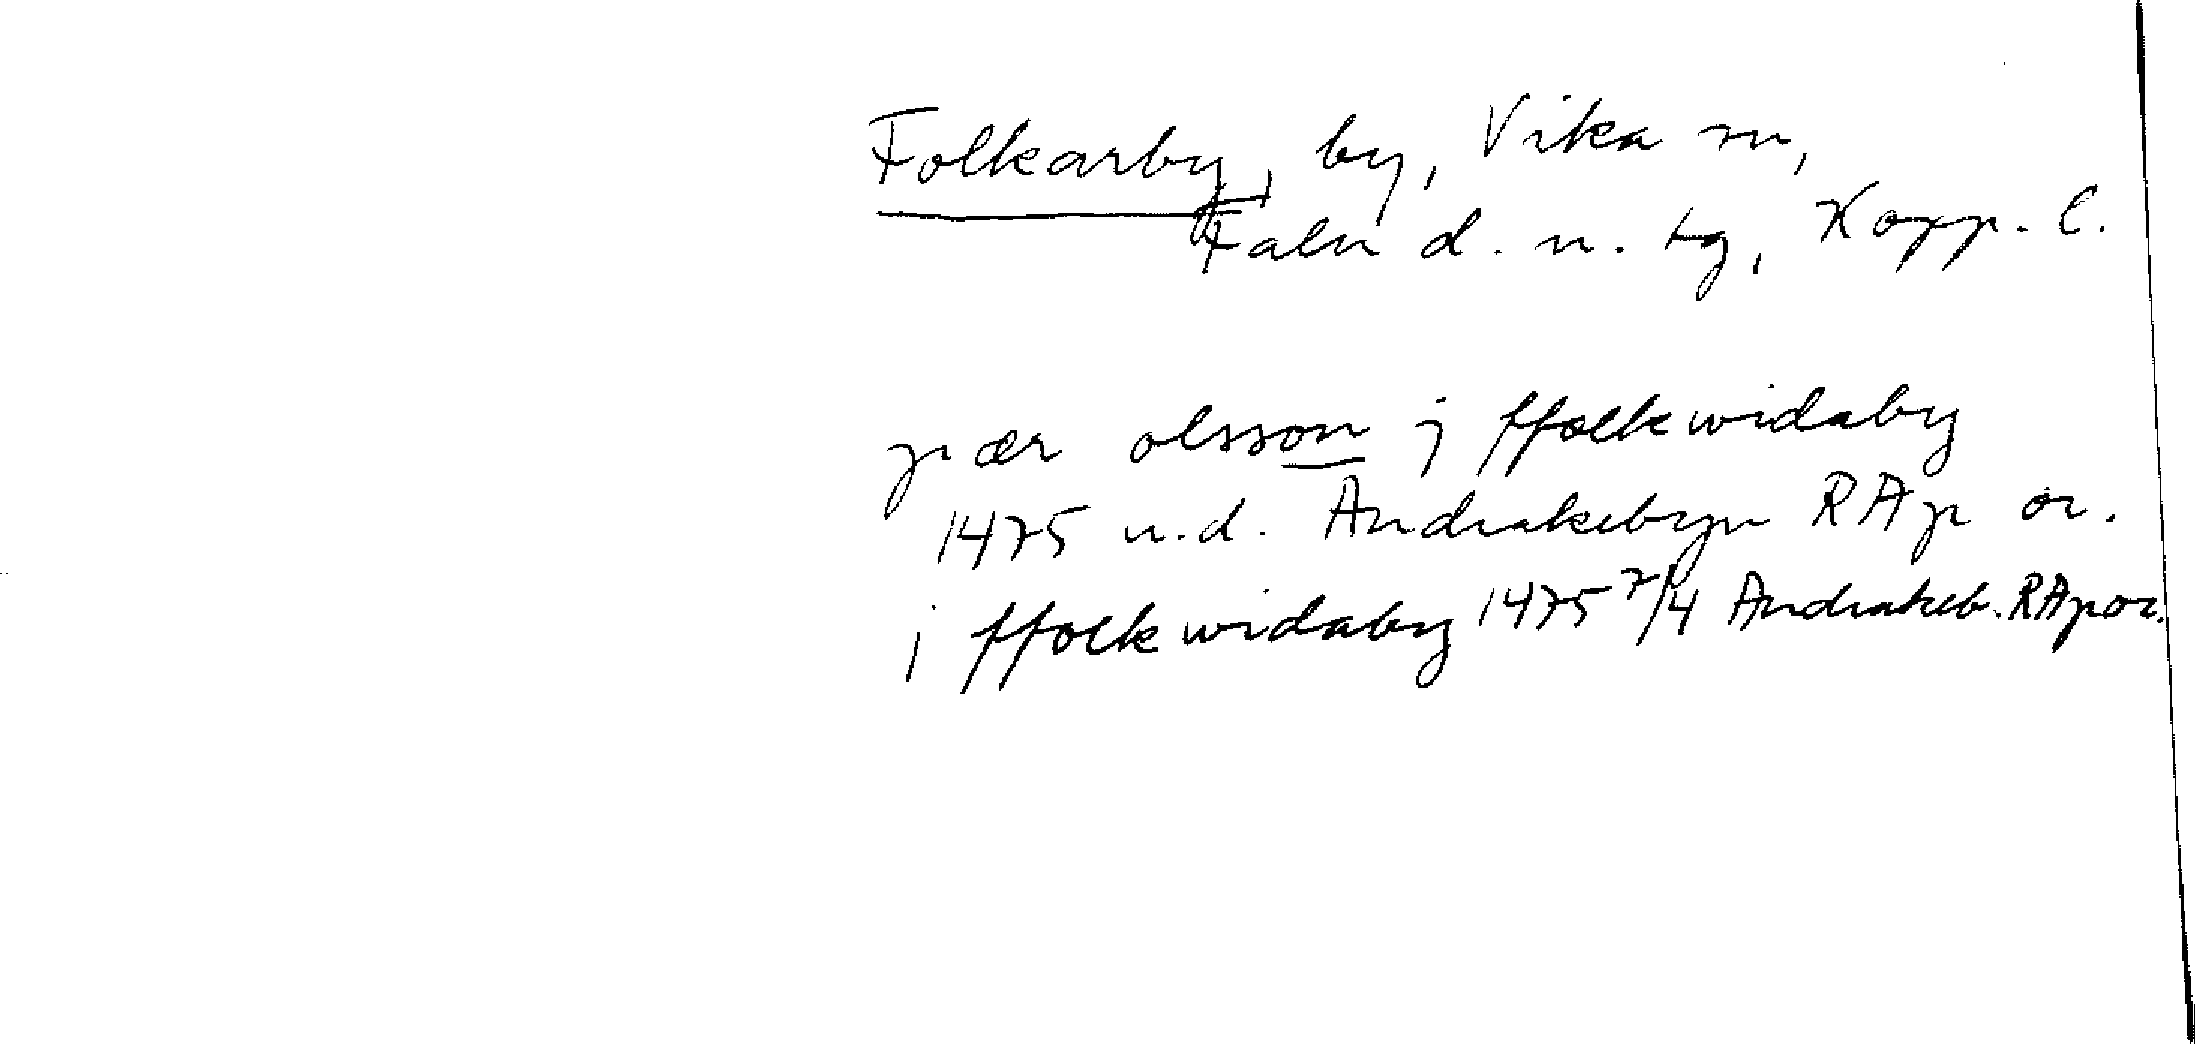 Folkarby, by, Vika sn,
Falu d. n. tg, Kopp. l.
pær olsson j ffolkwidaby
1475 u.d. Andrakebyn RAp or.
i ffolkwidaby 1475 7/4 Andrakeb. RAp or.